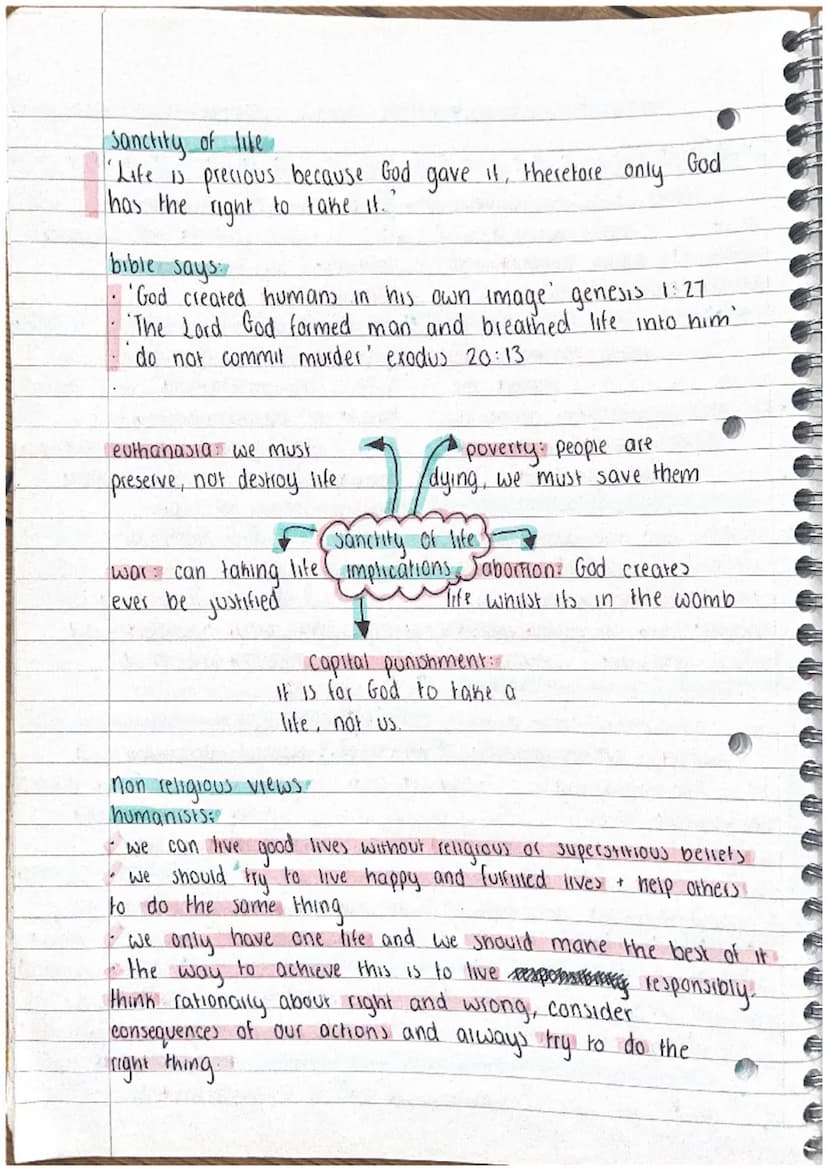 sanctity of life
'Life is precious because God gave it, therefore only God
has the right to take it.'
bible says:
· 'God created humans in his own image' genesis 1:27
· 'The Lord God formed man and breathed life into him'
· 'do not commit murder' exodus 20:13
euthanasia: we must
preserve, not destroy life
poverty: people are
dying, we must save them
sanctity of life
implications
war: can taking life
ever be justified
abortion: God creates
life whilst its in the womb
capital punishment:
it is for God to take a
life, not us.
non religious views
humanists:
· we can live good lives without religious or superstitious beliefs
· we should try to live happy and fulfilled lives + help others
to do the same thing
· we only have one life and we should make the best of it
· the way to achieve this is to live responsibly.
think rationally about right and wrong, consider
consequences of our actions and always try to do the
right thing.